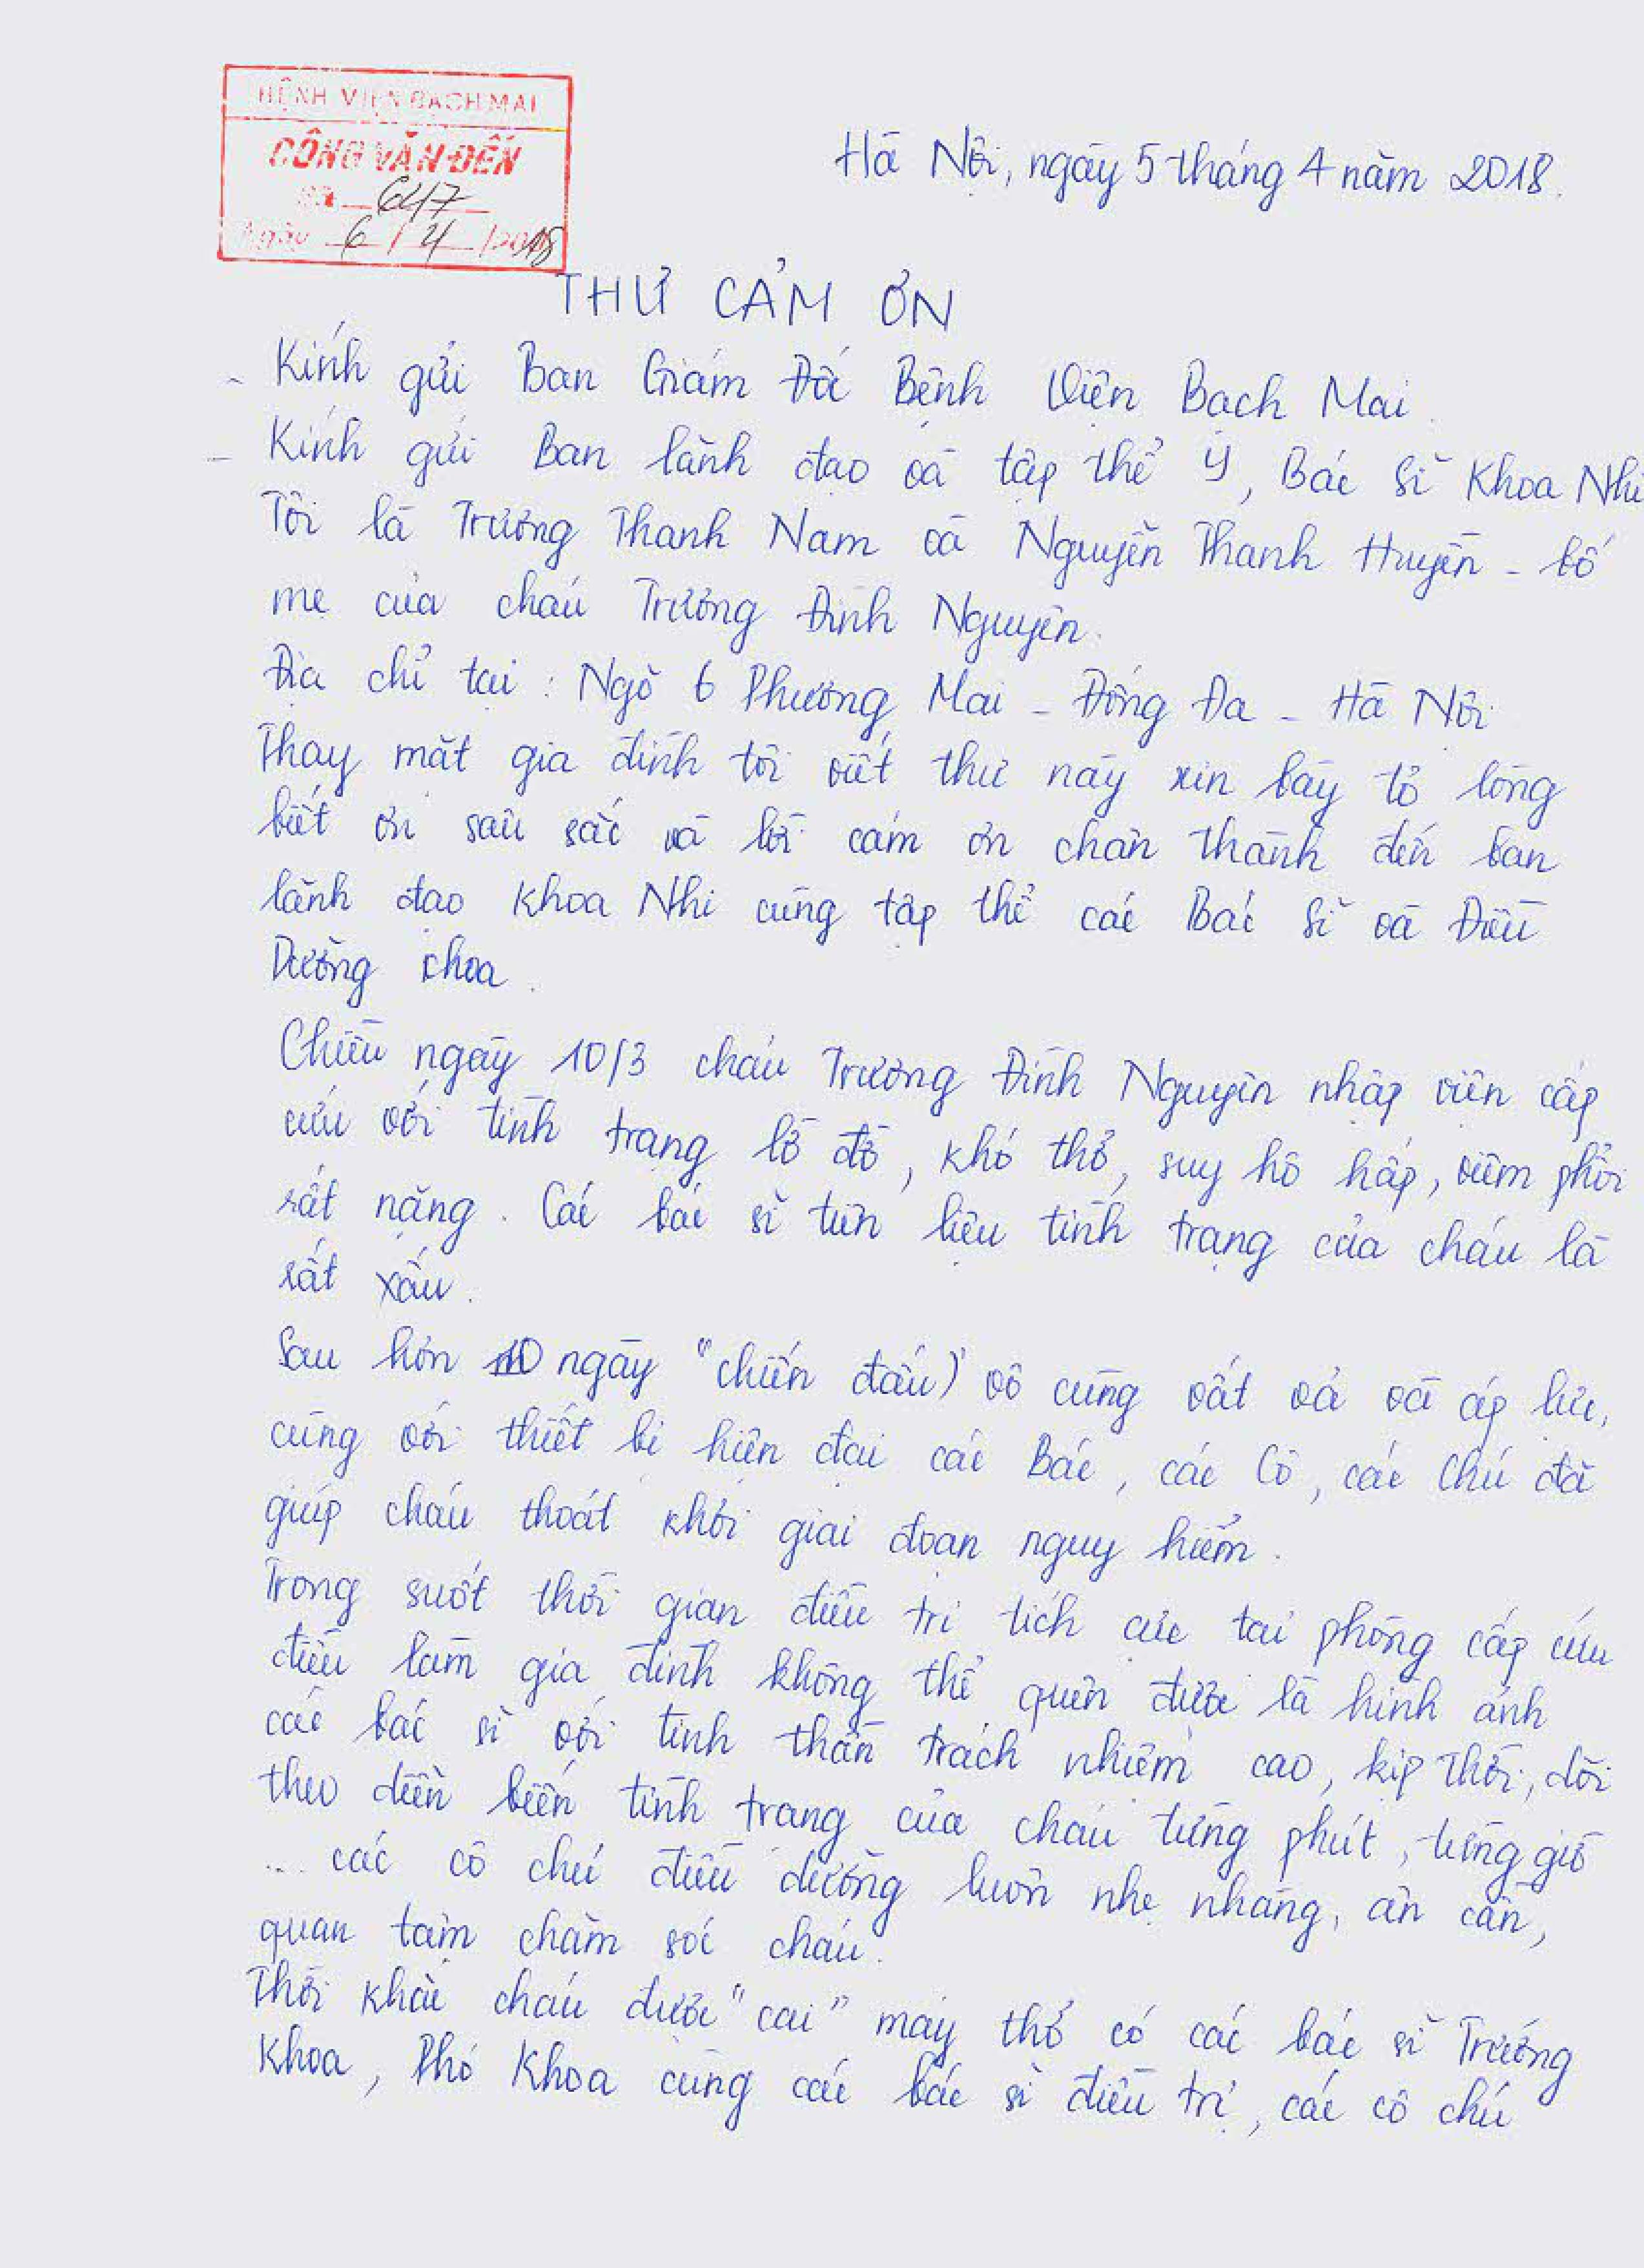 BỆNH VIỆN BẠCH MAI
CÔNG VĂN ĐẾN
Số 647
Ngày 6 / 4 / 2018
Hà Nội, ngày 5 tháng 4 năm 2018.
THƯ CẢM ƠN
- Kính gửi Ban Giám Đốc Bệnh Viện Bạch Mai.
- Kính gửi Ban lãnh đạo và tập thể Y, Bác sĩ Khoa Nhi
Tôi là Trương Thanh Nam và Nguyễn Thanh Huyền - bố
mẹ của cháu Trương Đình Nguyên.
Địa chỉ tại: Ngõ 6 Phương Mai - Đống Đa - Hà Nội
Thay mặt gia đình tôi viết thư này xin bày tỏ lòng
biết ơn sâu sắc và lời cám ơn chân thành đến ban
lãnh đạo khoa Nhi cùng tập thể các Bác sĩ và Điều
Dưỡng khoa.
Chiều ngày 10/3 cháu Trương Đình Nguyên nhập viện cấp
cứu với tình trạng lờ đờ, khó thở, suy hô hấp, viêm phổi
rất nặng. Các bác sĩ tiên liệu tình trạng của cháu là
rất xấu.
Sau hơn 10 ngày "chiến đấu" vô cùng vất vả và áp lực,
cùng với thiết bị hiện đại các Bác, các Cô, các Chú đã
giúp cháu thoát khỏi giai đoạn nguy hiểm.
Trong suốt thời gian điều trị tích cực tại phòng cấp cứu
điều làm gia đình không thể quên được là hình ảnh
các bác sĩ với tinh thần trách nhiệm cao, kịp thời, dõi
theo diễn biến tình trạng của cháu từng phút, từng giờ
... các cô chú điều dưỡng luôn nhẹ nhàng, ân cần,
quan tâm chăm sóc cháu.
Thời khắc cháu được "cai" máy thở có các bác sĩ Trưởng
Khoa, Phó Khoa cùng các bác sĩ điều trị, các cô chú